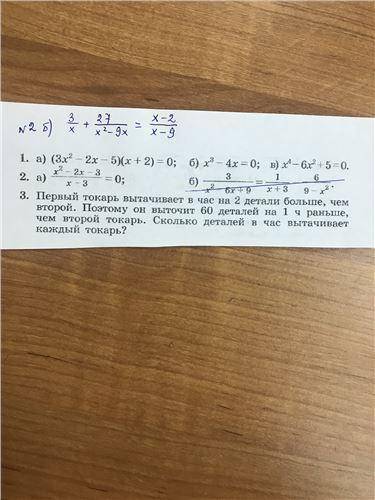 №2 б) 3/x + 27/(x² − 9x) = (x−2)/(x−9)
1. а) (3x² − 2x − 5)(x + 2) = 0; б) x³ − 4x = 0; в) x⁴ − 6x² + 5 = 0.
2. а) (x² − 2x − 3)/(x − 3) = 0; б) 3/(x² − 6x + 9) = 1/(x + 3) − 6/(9 − x²).
3. Первый токарь вытачивает в час на 2 детали больше, чем
второй. Поэтому он выточит 60 деталей на 1 ч раньше,
чем второй токарь. Сколько деталей в час вытачивает
каждый токарь?